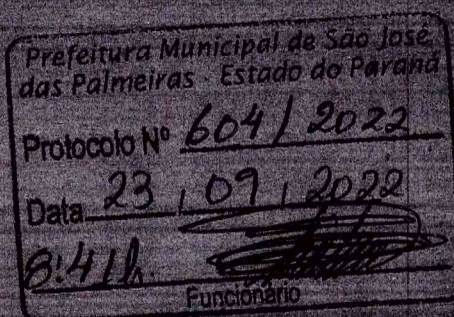 Prefeitura Municipal de São José
das Palmeiras - Estado do Paraná
Protocolo Nº 604 / 2022
Data 23 / 09 / 2022
8:41h.
Funcionário